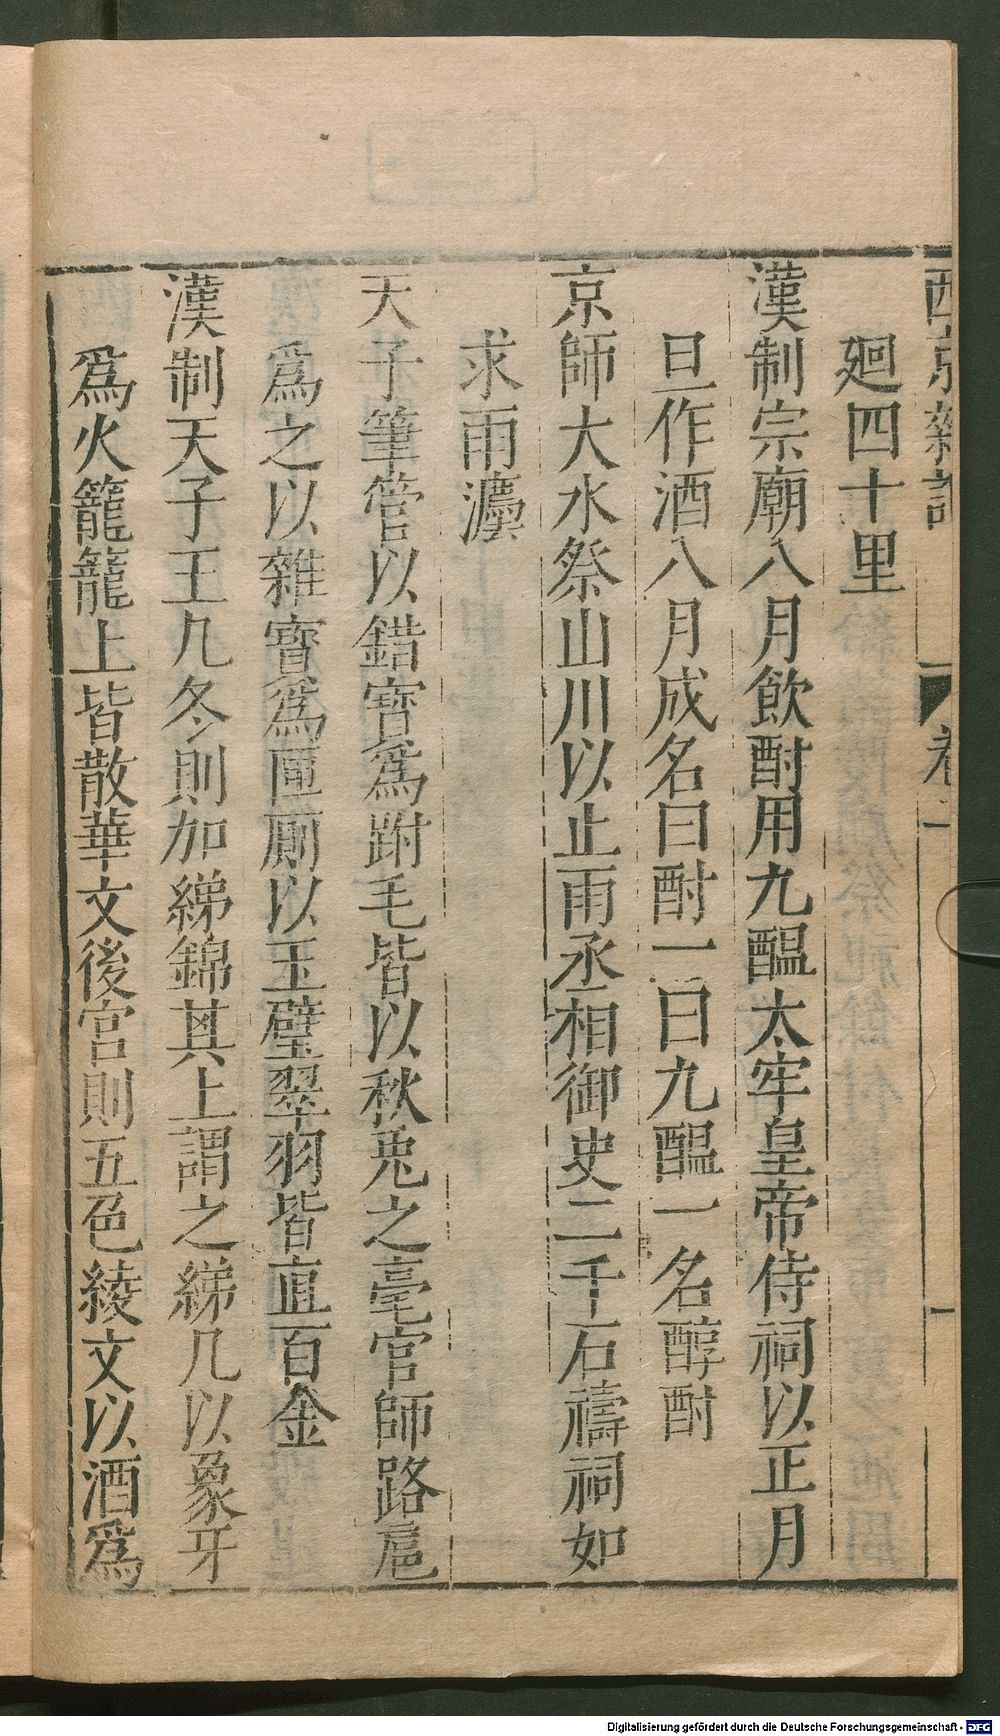 西京雜記 卷一 一
廻四十里
漢制宗廟八月飲酎用九醞太牢皇帝侍祠以正月
旦作酒八月成名曰酎一曰九醞一名醇酎
京師大水祭山川以止雨丞相御史二千石禱祠如
求雨灋
天子筆管以錯寶為跗毛皆以秋兎之毫官師路扈
爲之以雜寶爲匣厠以玉璧翠羽皆直百金
漢制天子玉几冬則加綈錦其上謂之綈几以象牙
爲火籠籠上皆散華文後宮則五色綾文以酒爲
Digitalisierung gefördert durch die Deutsche Forschungsgemeinschaft - DFG